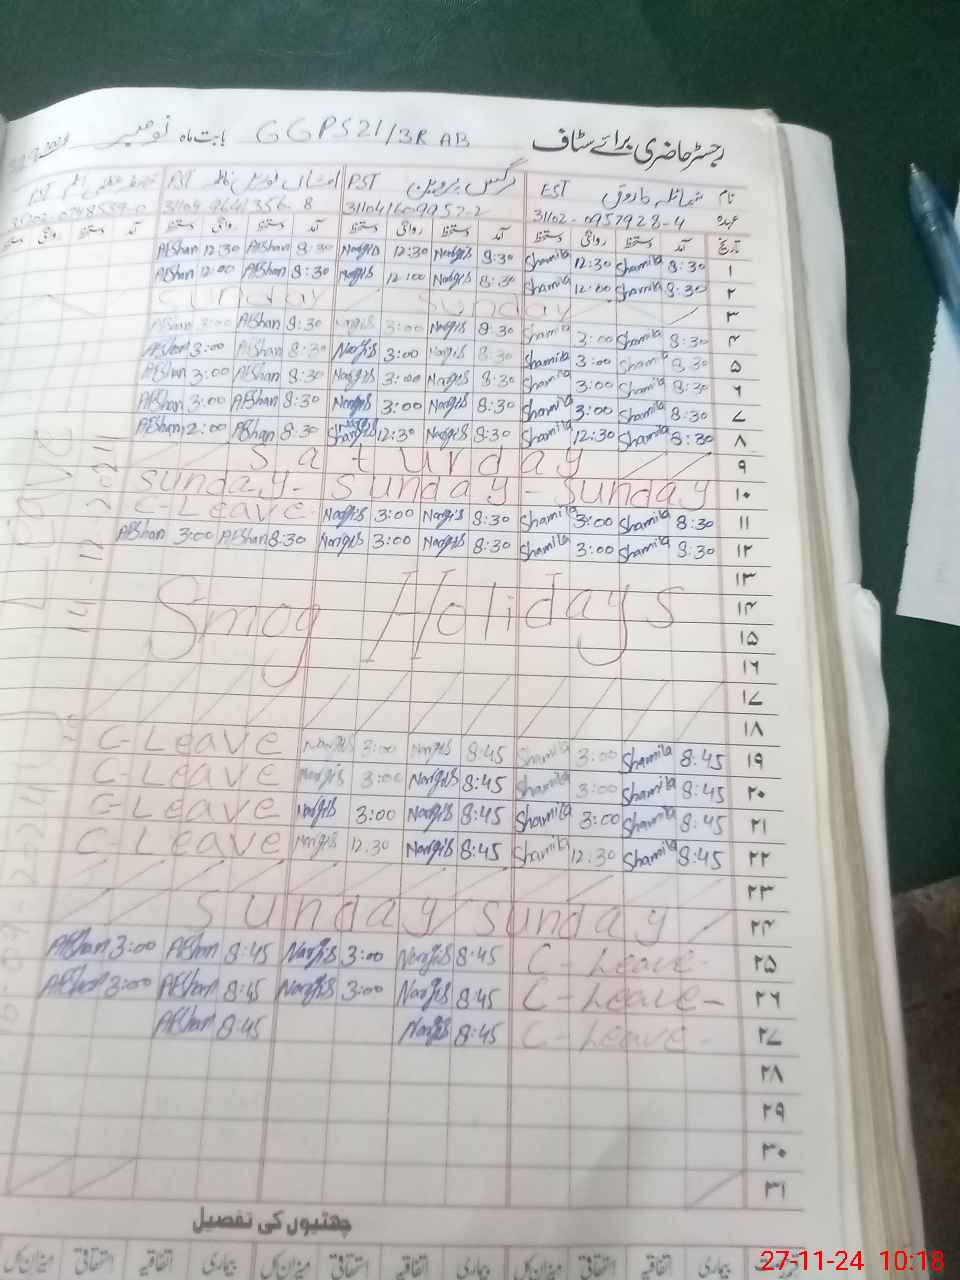 رجسٹر حاضری برائے سٹاف GGPS 21/3R AB بابت ماہ نومبر
نام شمائلہ فاروق EST نرگس پروین PST افشاں PST PST
عہدہ 31102-0957928-4 31104
تاریخ آمد دستخط روانگی دستخط آمد دستخط روانگی دستخط آمد دستخط روانگی دستخط آمد دستخط روانگی دستخط
۱ 8:30 Shamila 12:30 Shamila 8:30 Nargis 12:30 Nargis 8:30 Afshan 12:30 Afshan
۲ 8:30 Shamila 12:00 Shamila 8:30 Nargis 12:00 Nargis 8:30 Afshan 12:00 Afshan
۳ Sunday Sunday
۴ 8:30 Shamila 3:00 Shamila 8:30 Nargis 3:00 Nargis 8:30 Afshan 3:00 Afshan
۵ 8:30 Shamila 3:00 Shamila 8:30 Nargis 3:00 Nargis 8:30 Afshan 3:00 Afshan
۶ 8:30 Shamila 3:00 Shamila 8:30 Nargis 3:00 Nargis 8:30 Afshan 3:00 Afshan
۷ 8:30 Shamila 3:00 Shamila 8:30 Nargis 3:00 Nargis 8:30 Afshan 3:00 Afshan
۸ 8:30 Shamila 12:30 Shamila 8:30 Nargis 12:30 8:30 Afshan Afshan
۹ Saturday
۱۰ Sunday - Sunday - Sunday
۱۱ 8:30 Shamila 3:00 Shamila 8:30 Nargis 3:00 Nargis C-Leave
۱۲ 8:30 Shamila 3:00 Shamila 8:30 Nargis 3:00 Nargis 8:30 Afshan 3:00 Afshan
۱۳
۱۴ Smog Holidays
۱۵
۱۶
۱۷
۱۸
۱۹ 8:45 Shamila 3:00 Shamila 8:45 Nargis 3:00 Nargis C-Leave
۲۰ 8:45 Shamila 3:00 Shamila 8:45 Nargis 3:00 Nargis C-Leave
۲۱ 8:45 Shamila 3:00 Shamila 8:45 Nargis 3:00 Nargis C-Leave
۲۲ 8:45 Shamila 12:30 Shamila 8:45 Nargis 12:30 Nargis C-Leave
۲۳
۲۴ Sunday Sunday
۲۵ C-Leave- 8:45 Nargis 3:00 Nargis 8:45 Afshan 3:00 Afshan
۲۶ C-Leave- 8:45 Nargis 3:00 Nargis 8:45 Afshan 3:00 Afshan
۲۷ C-Leave- 8:45 Nargis 8:45 Afshan
۲۸
۲۹
۳۰
۳۱
چھٹیوں کی تفصیل
بیماری اتفاقیہ استحقاقی میزان کل بیماری اتفاقیہ استحقاقی میزان کل بیماری اتفاقیہ استحقاقی میزان کل
27-11-24 10:18